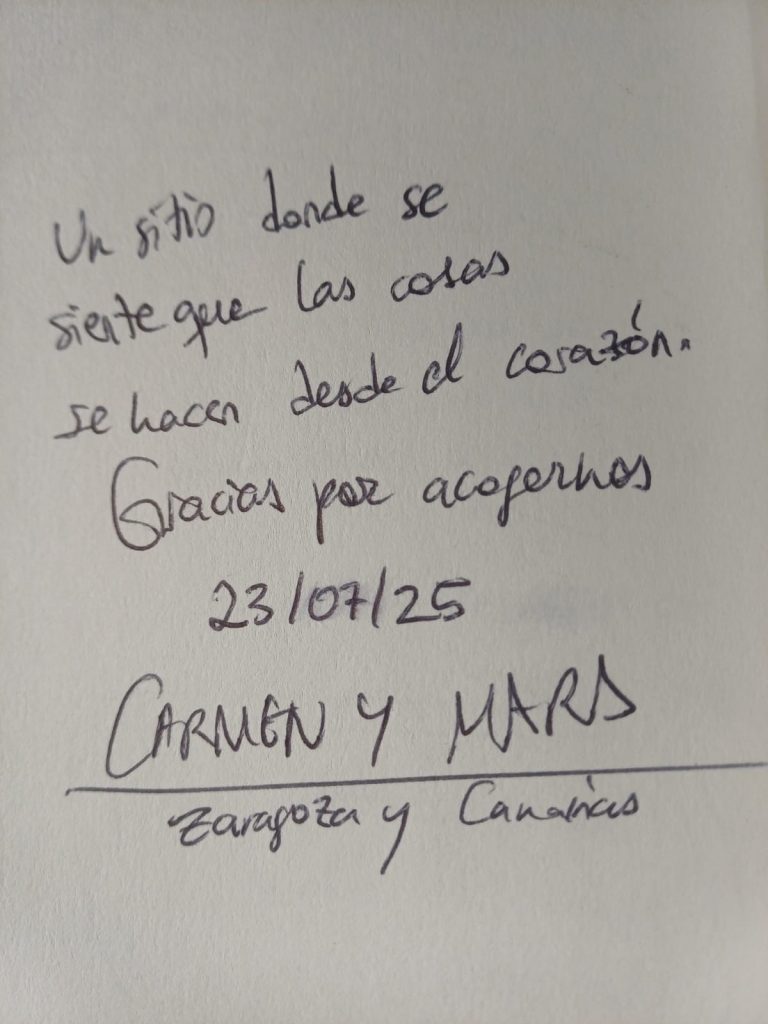 Un sitio donde se
siente que las cosas
se hacen desde el corazón.
Gracias por acogernos
23/07/25
CARMEN Y MARS
Zaragoza y Canarias